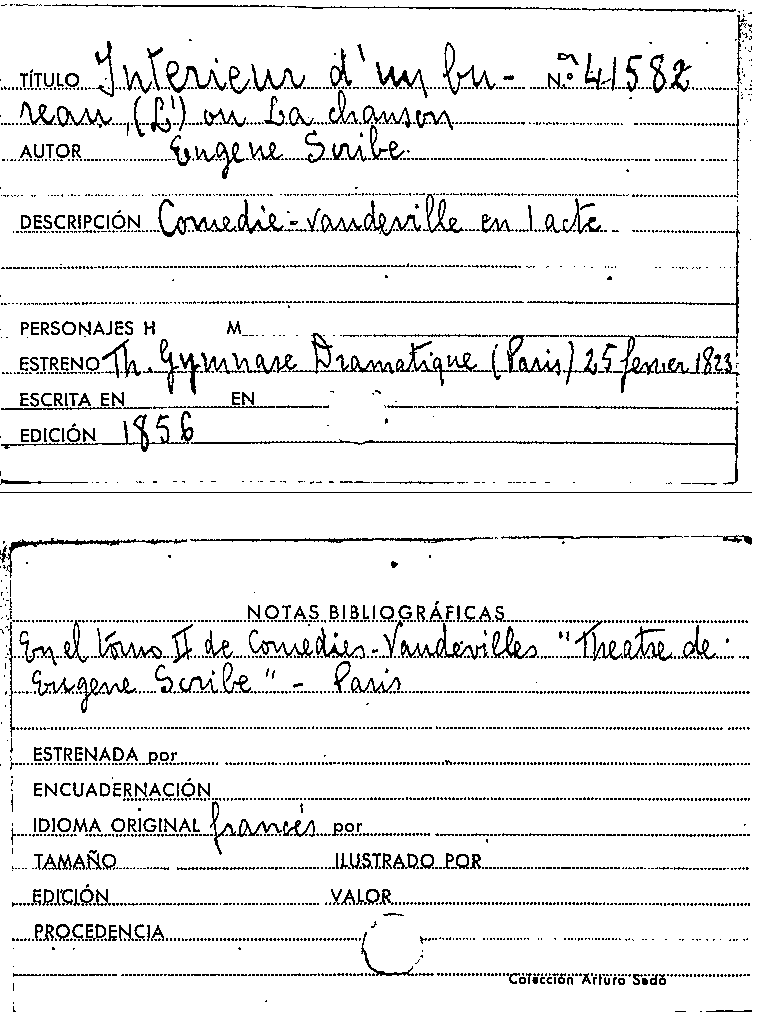 TÍTULO Interieur d'un bu- N.º 41582
reau, (L') ou La chanson
AUTOR Eugene Scribe.
DESCRIPCIÓN Comedie-vaudeville en 1 acte
PERSONAJES H M
ESTRENO Th. Gymnase Dramatique (Paris) 25 fevrier 1823
ESCRITA EN EN
EDICIÓN 1856
NOTAS BIBLIOGRÁFICAS
En el tomo II de Comedies-Vaudevilles "Theatre de
Eugene Scribe" - Paris
ESTRENADA por
ENCUADERNACIÓN
IDIOMA ORIGINAL francés por
TAMAÑO ILUSTRADO POR
EDICIÓN VALOR
PROCEDENCIA
Colección Arturo Sedó